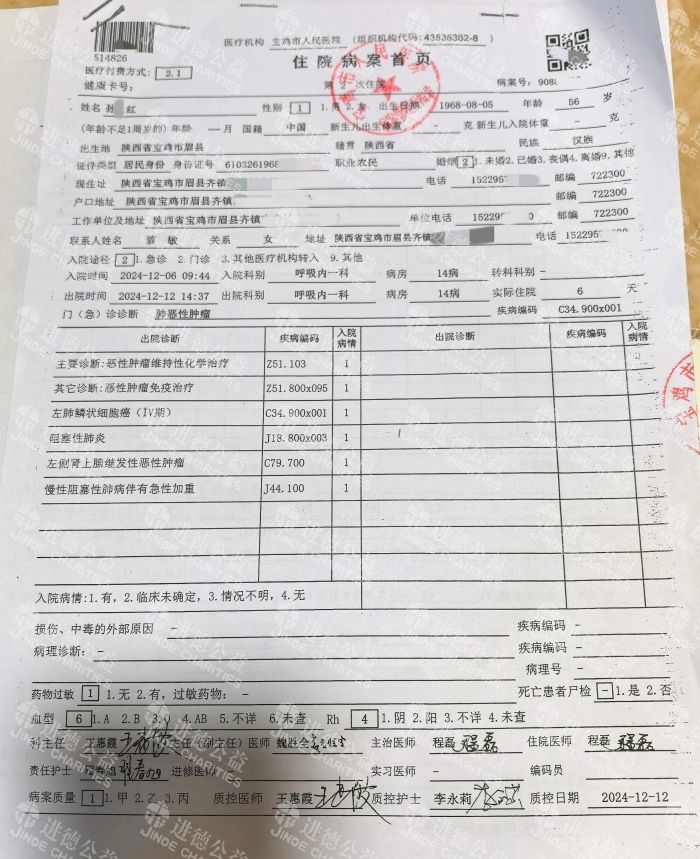 514826
医疗机构 宝鸡市人民医院 (组织机构代码:43536362-8)
医疗付费方式: 2.1
住院病案首页
健康卡号:
第 2 次住院
病案号: 908
姓名 孙 红 性别 1 1.男 2.女 出生日期 1968-08-05 年龄 56 岁
(年龄不足1周岁的)年龄 — 月 国籍 中国 新生儿出生体重 - 克 新生儿入院体重 - 克
出生地 陕西省宝鸡市眉县 籍贯 陕西省 民族 汉族
证件类型 居民身份 身份证号 6103261968 职业 农民 婚姻 2 1.未婚 2.已婚 3.丧偶 4.离婚 9.其他
现住址 陕西省宝鸡市眉县齐镇 电话 152295 邮编 722300
户口地址 陕西省宝鸡市眉县齐镇 邮编 722300
工作单位及地址 陕西省宝鸡市眉县齐镇 单位电话 152295 0 邮编 722300
联系人姓名 敏 关系 女 地址 陕西省宝鸡市眉县 电话 152295
入院途径 2 1.急诊 2.门诊 3.其他医疗机构转入 9.其他
入院时间 2024-12-06 09:44 入院科别 呼吸内一科 病房 14病 转科科别 -
出院时间 2024-12-12 14:37 出院科别 呼吸内一科 病房 14病 实际住院 6 天
门(急)诊诊断 肺恶性肿瘤 疾病编码 C34.900x001
出院诊断 疾病编码 入院病情 出院诊断 疾病编码 入院病情
主要诊断:恶性肿瘤维持性化学治疗 Z51.103 1
其它诊断:恶性肿瘤免疫治疗 Z51.800x095 1
左肺鳞状细胞癌(IV期) C34.900x001 1
阻塞性肺炎 J18.800x003 1
左侧肾上腺继发性恶性肿瘤 C79.700 1
慢性阻塞性肺病伴有急性加重 J44.100 1
入院病情:1.有, 2.临床未确定, 3.情况不明, 4.无
损伤、中毒的外部原因 - 疾病编码 -
病理诊断: - 疾病编码 -
病理号 -
药物过敏 1 1.无 2.有, 过敏药物: - 死亡患者尸检 - 1.是 2.否
血型 6 1.A 2.B 3.O 4.AB 5.不详 6.未查 Rh 4 1.阴 2.阳 3.不详 4.未查
科主任 王惠霞 主任(副主任)医师 魏胜全 主治医师 程磊 程磊 住院医师 程磊 程磊
责任护士 进修医师 - 实习医师 - 编码员
病案质量 1 1.甲 2.乙 3.丙 质控医师 王惠霞 质控护士 李永莉 质控日期 2024-12-12
进德公益
JINDE CHARITIES